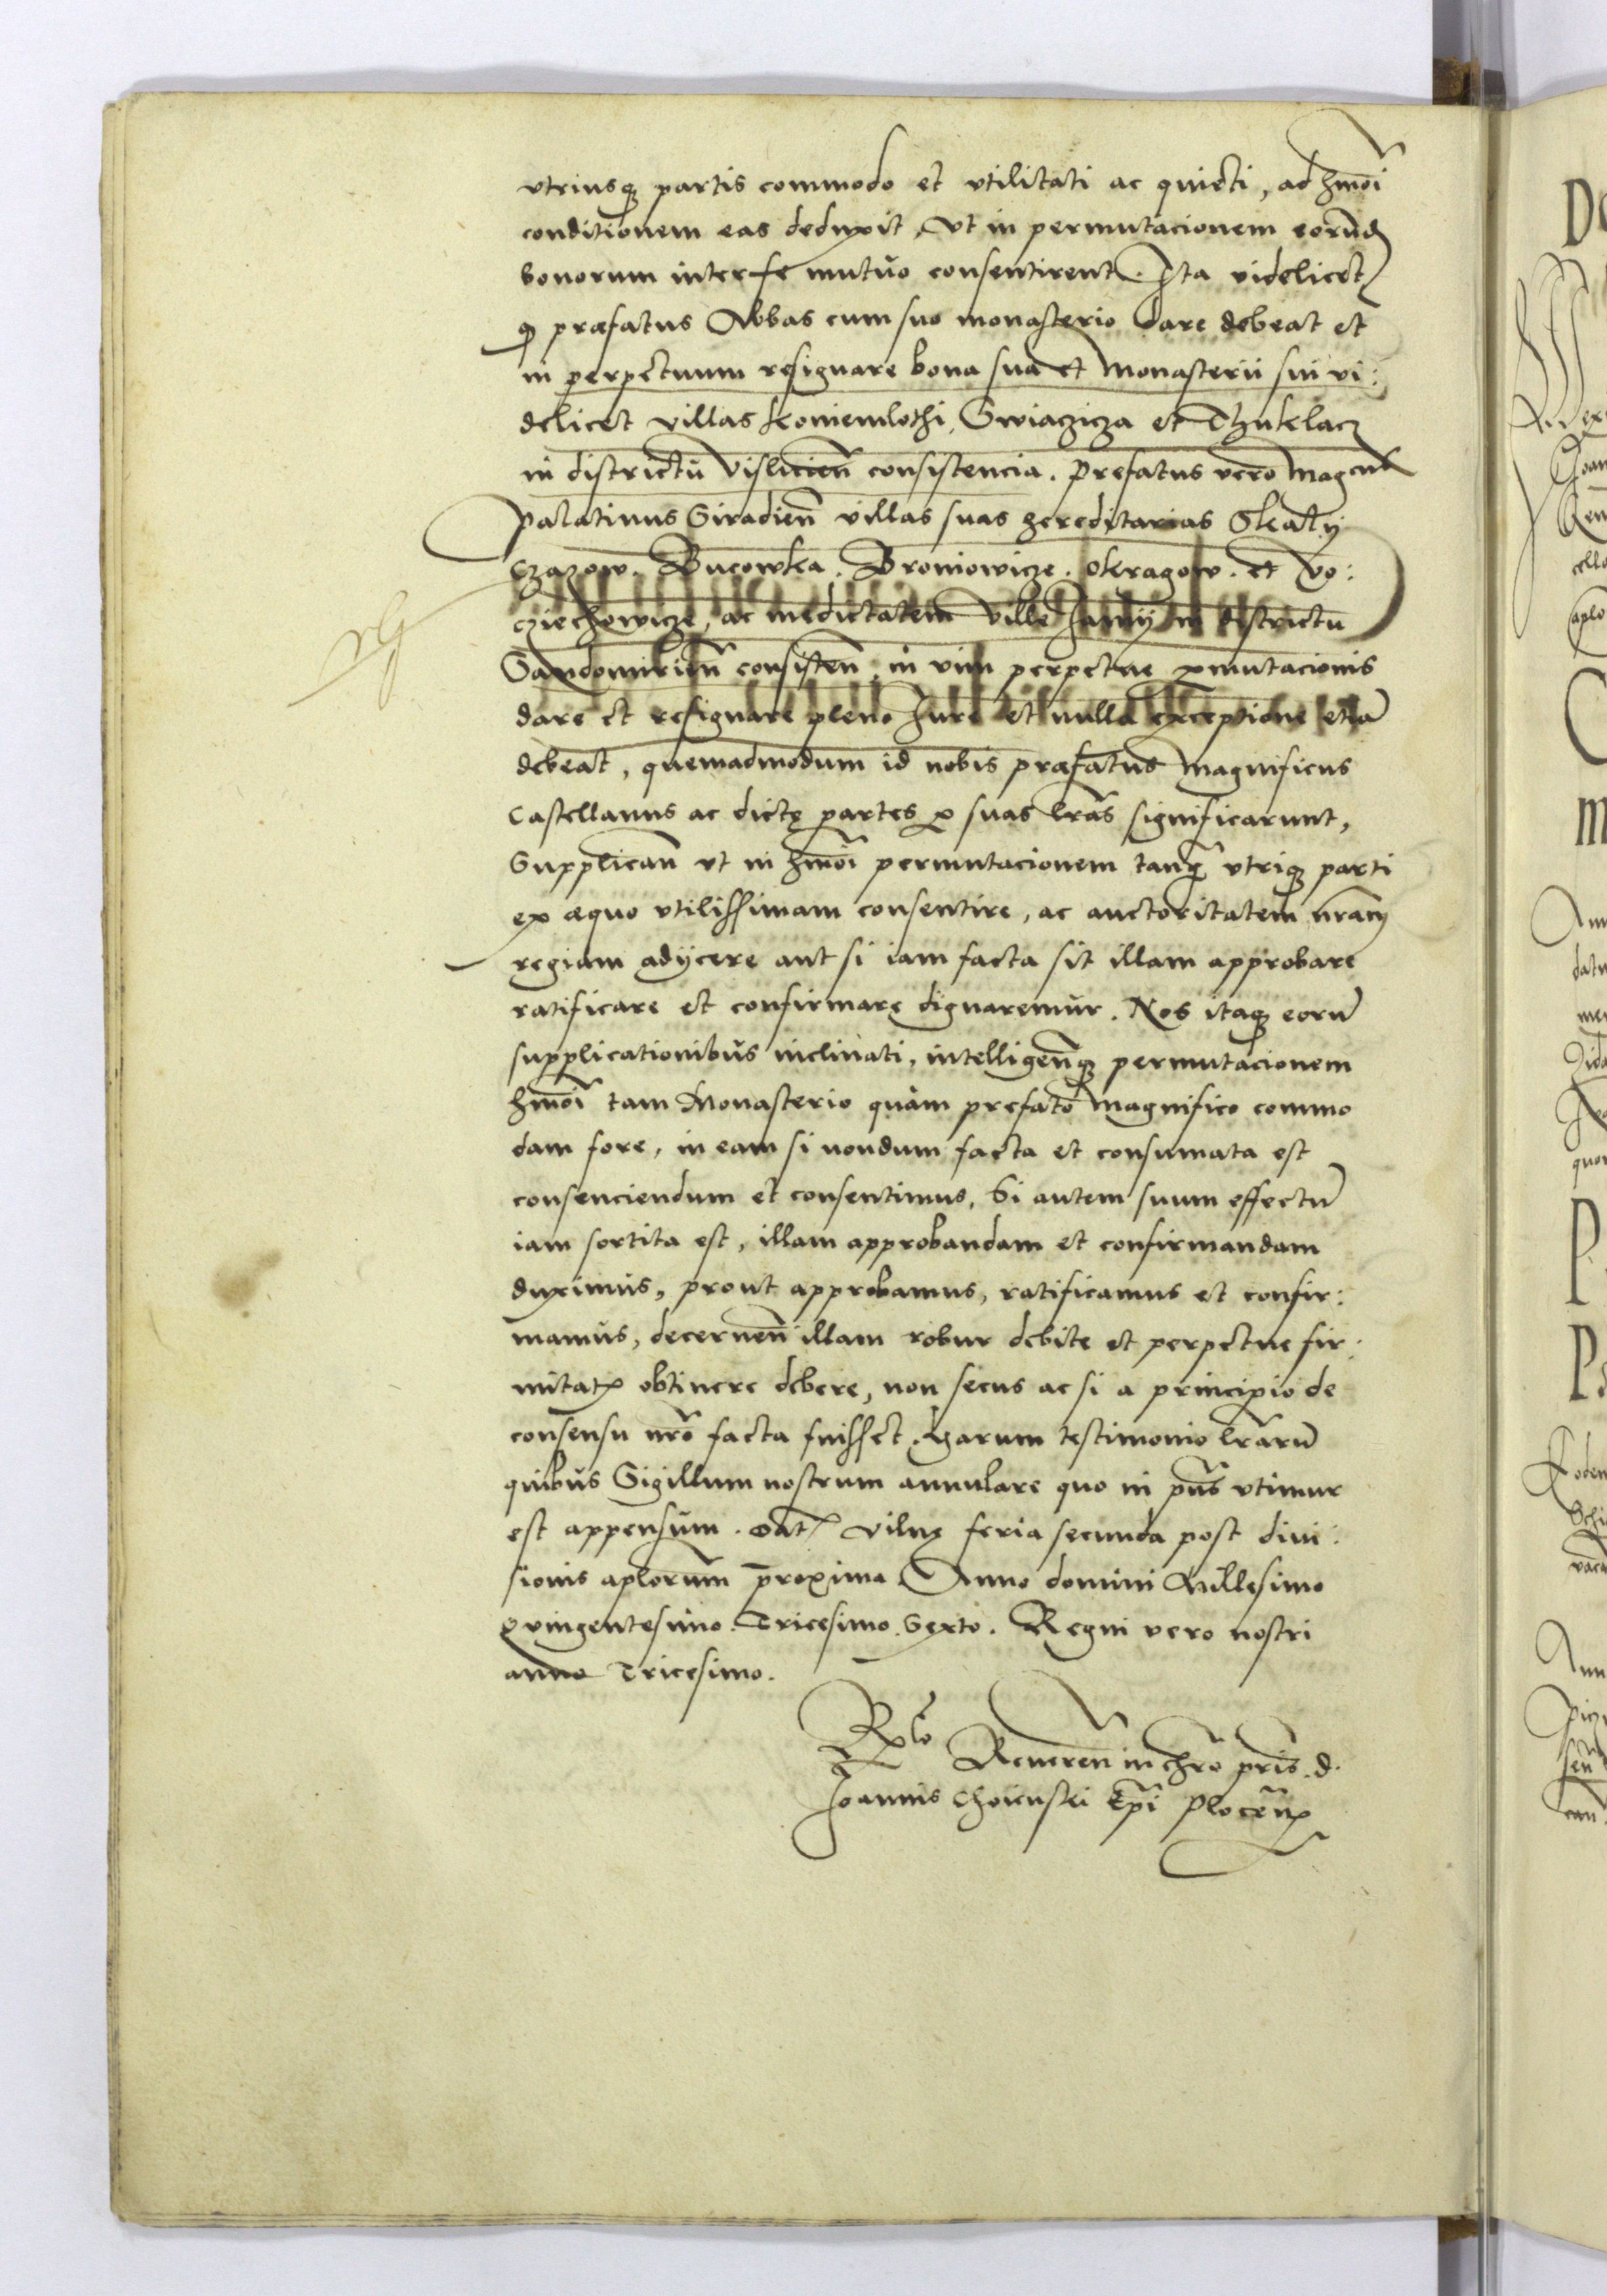 vtriusq₃ partis commodo et vtilitati ac quieti, ad hmōi
conditionem eas deduxit, Vt in permutacionem eorūd
bonorum inter se mutuo consentirent. Ita videlicet
q̨ præfatus Abbas cum suo monasterio dare debeat et
in perpetuum resignare bona sua et Monasterii sui vi:
delicet villas koniemlothi, Swiaczicza et
in districtū Vislicień consistencia. Prefatus vero
Palatinus Siradień villas suas hereditarias Skałij
Czazow. Bucowka. Broniowicze. Okragow. et Vo:
cziechowicze, ac medietatem Ville Janij in districtu
Sandomirień consisteń in vim perpetue ꝑmutacionis
dare et resignare pleno Jure et nulla exceptione etiā
debeat, quemadmodum id nobis præfatus Magnificus
Castellanus ac dictę partes ꝑ suas lrās significarunt,
Supplicań vt in hmōi permutacionem tanq̄ vtriq₃ parti
ex æquo vtilissimam consentire, ac auctoritatem nrām
regiam adijcere aut si iam facta sit illam approbare
ratificare et confirmare dignaremur. Nos itaq₃ eorū
supplicationibus inclinati, intelligeńq₃ permutacionem
hmōi tam Monasterio quàm prefato Magnifico commo
dam fore, in eam si nondum facta et consumata est
consenciendum et consentimus, Si autem suum effectū
iam sortita est, illam approbandam et confirmandam
duximus, prout approbamus, ratificamus et confir:
mamus, decerneń illam robur debite et perpetue fir:
mitatꝭ obtinere debere, non secus ac si a principio de
consensu nrō facta fuisset. Harum testimonio lrārū
quibus Sigillum nostrum annulare quo in pn̄s vtimur
est appensum. Datꝭ Vilnę feria secunda post diui:
sionis aplorum̄ proxima. Anno domini Millesimo
Qvingentesimo. Tricesimo. Sexto. Regni vero nostri
anno Tricesimo.
Rlō Revereń in chrō prīs. d.
Joannis Choienski Epī Ploceńꝭ